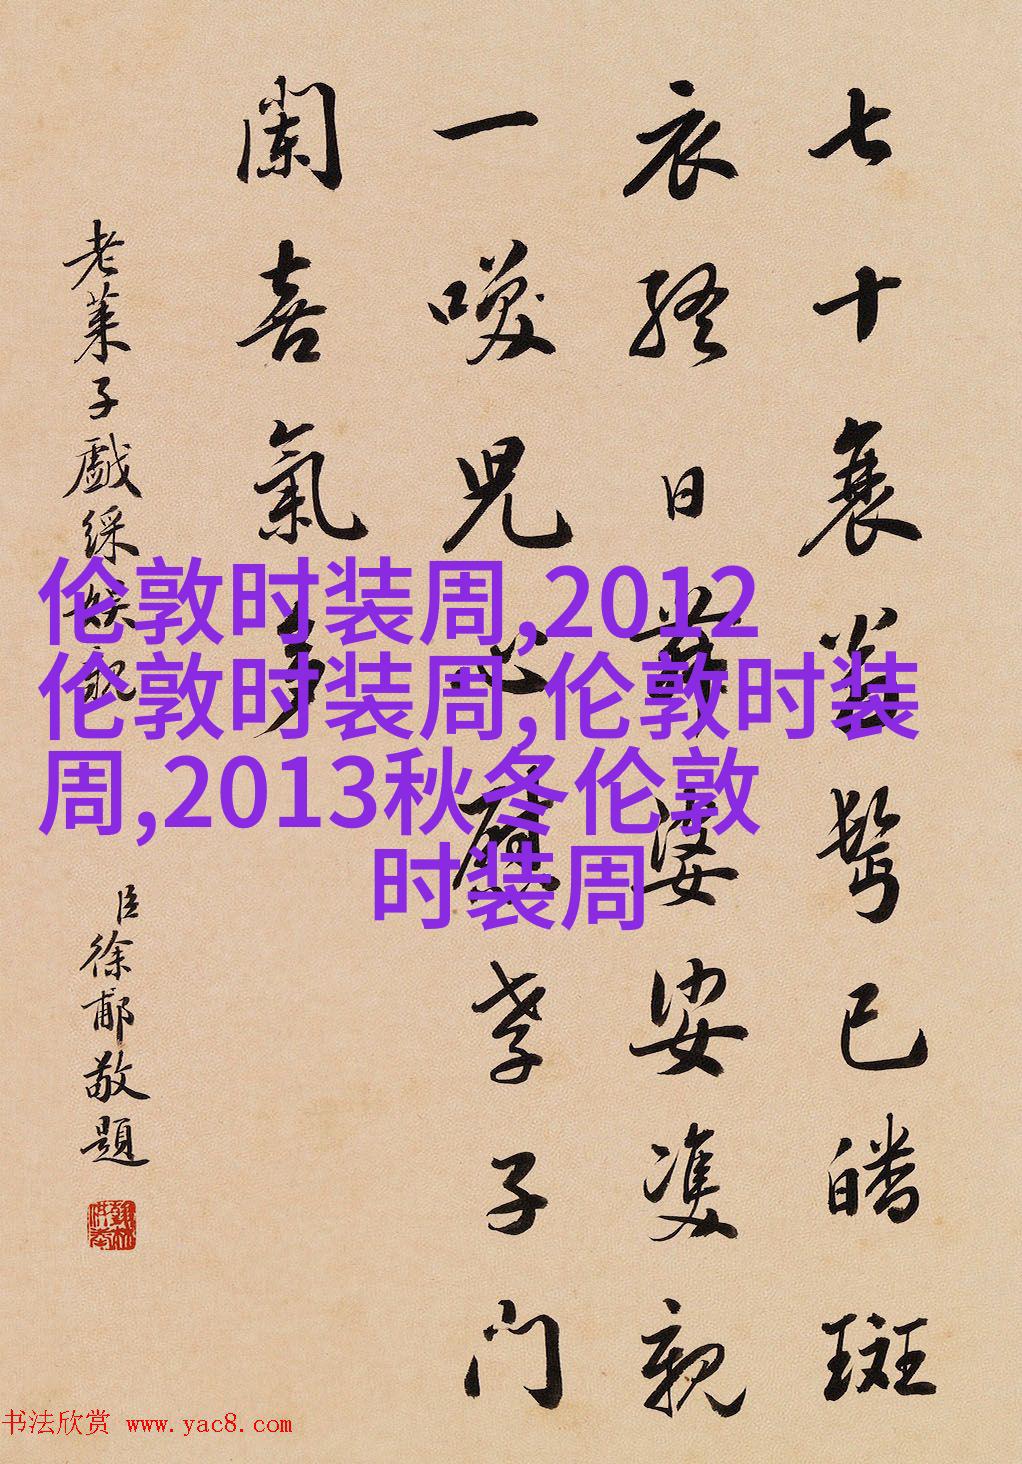 七十衰翁鬢已皤斑
衣終日舞婆娑雙親
一咲兒心孝子門
闌喜氣多
老萊子戲綵娛親
臣徐郙敬題
伦敦时装周,2012
伦敦时装周,伦敦时装
周,2013秋冬伦敦
时装周
书法欣赏 www.yac8.com